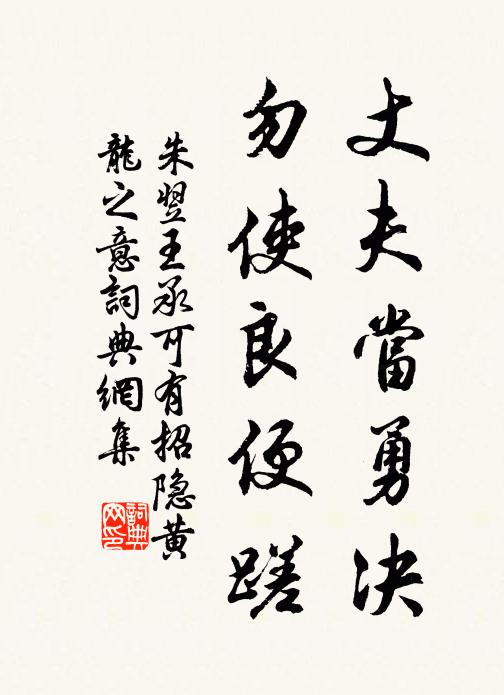 丈夫當勇決
勿使良便蹉
朱翌王承可有招隐黄
龍之意詞典網集
詞典网印